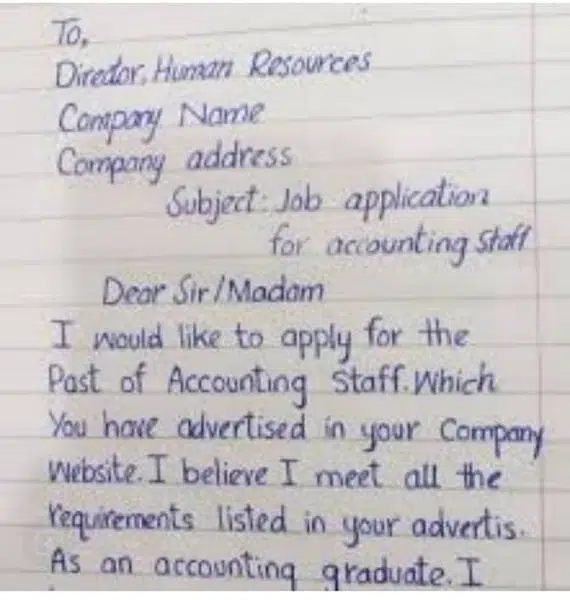 To,
Director, Human Resources
Company Name
Company address
Subject: Job application
for accounting staff
Dear Sir/Madam
I would like to apply for the
Post of Accounting Staff. Which
You have advertised in your Company
Website. I believe I meet all the
requirements listed in your advertis.
As an accounting graduate. I